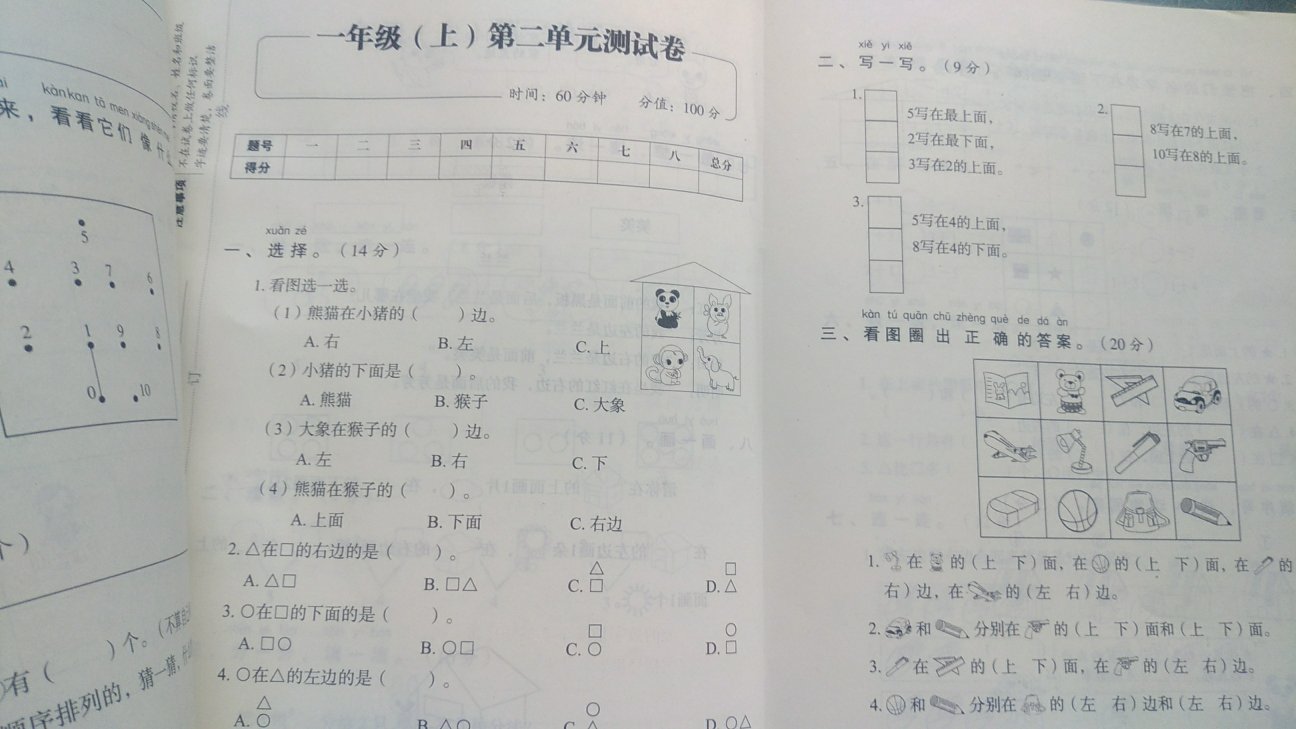 kànkan tā men xiàng shén
来，看看它们 像 什
5
4 3 7 6
2 1 9 8
0 10
个）
）个。
有（
顺序排列的，猜一猜，
注意事项
不在试卷上做任何标识
字迹要清楚，卷面要整洁
线
订
一年级（上）第二单元测试卷
时间：60分钟 分值：100分
题号 一 二 三 四 五 六 七 八 总分
得分
xuǎn zé
一、选择。（14分）
1. 看图选一选。
（1）熊猫在小猪的（ ）边。
A. 右 B. 左 C. 上
（2）小猪的下面是（ ）。
A. 熊猫 B. 猴子 C. 大象
（3）大象在猴子的（ ）边。
A. 左 B. 右 C. 下
（4）熊猫在猴子的（ ）。
A. 上面 B. 下面 C. 右边
2. △在□的右边的是（ ）。
A. △□ B. □△ C. △□ D. □△
3. ○在□的下面的是（ ）。
A. □○ B. ○□ C. □○ D. ○□
4. ○在△的左边的是（ ）。
A. △○ B. △○ C. ○△ D. ○△
xiě yi xiě
二、写一写。（9分）
1. 5写在最上面，
2写在最下面，
3写在2的上面。
2. 8写在7的上面，
10写在8的上面。
3. 5写在4的上面，
8写在4的下面。
kàn tú quān chū zhèng què de dá àn
三、看图圈出正确的答案。（20分）
1. 在 的（上 下）面，在 的（上 下）面，在 的
右）边，在 的（左 右）边。
2. 和 分别在 的（上 下）面和（上 下）面。
3. 在 的（上 下）面，在 的（左 右）边。
4. 和 分别在 的（左 右）边和（左 右）边。